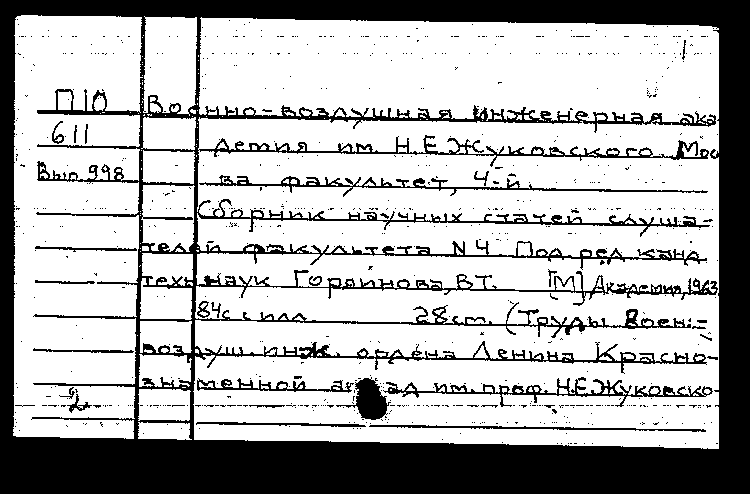 1
П10 Военно-воздушная инженерная ака-
611 демия им. Н.Е.Жуковского Мос
Вып. 998 ва, факультет, 4-й.
Сборник научных статей слуша-
телей факультета N 4. Под ред. канд
техн наук Горяинова, В.Т. [М] Академия, 1963
84с с илл. 28см. (Труды Воен.-
воздуш. инж. ордена Ленина Красно-
знаменной акад им. проф. Н.Е.Жуковско-
2.